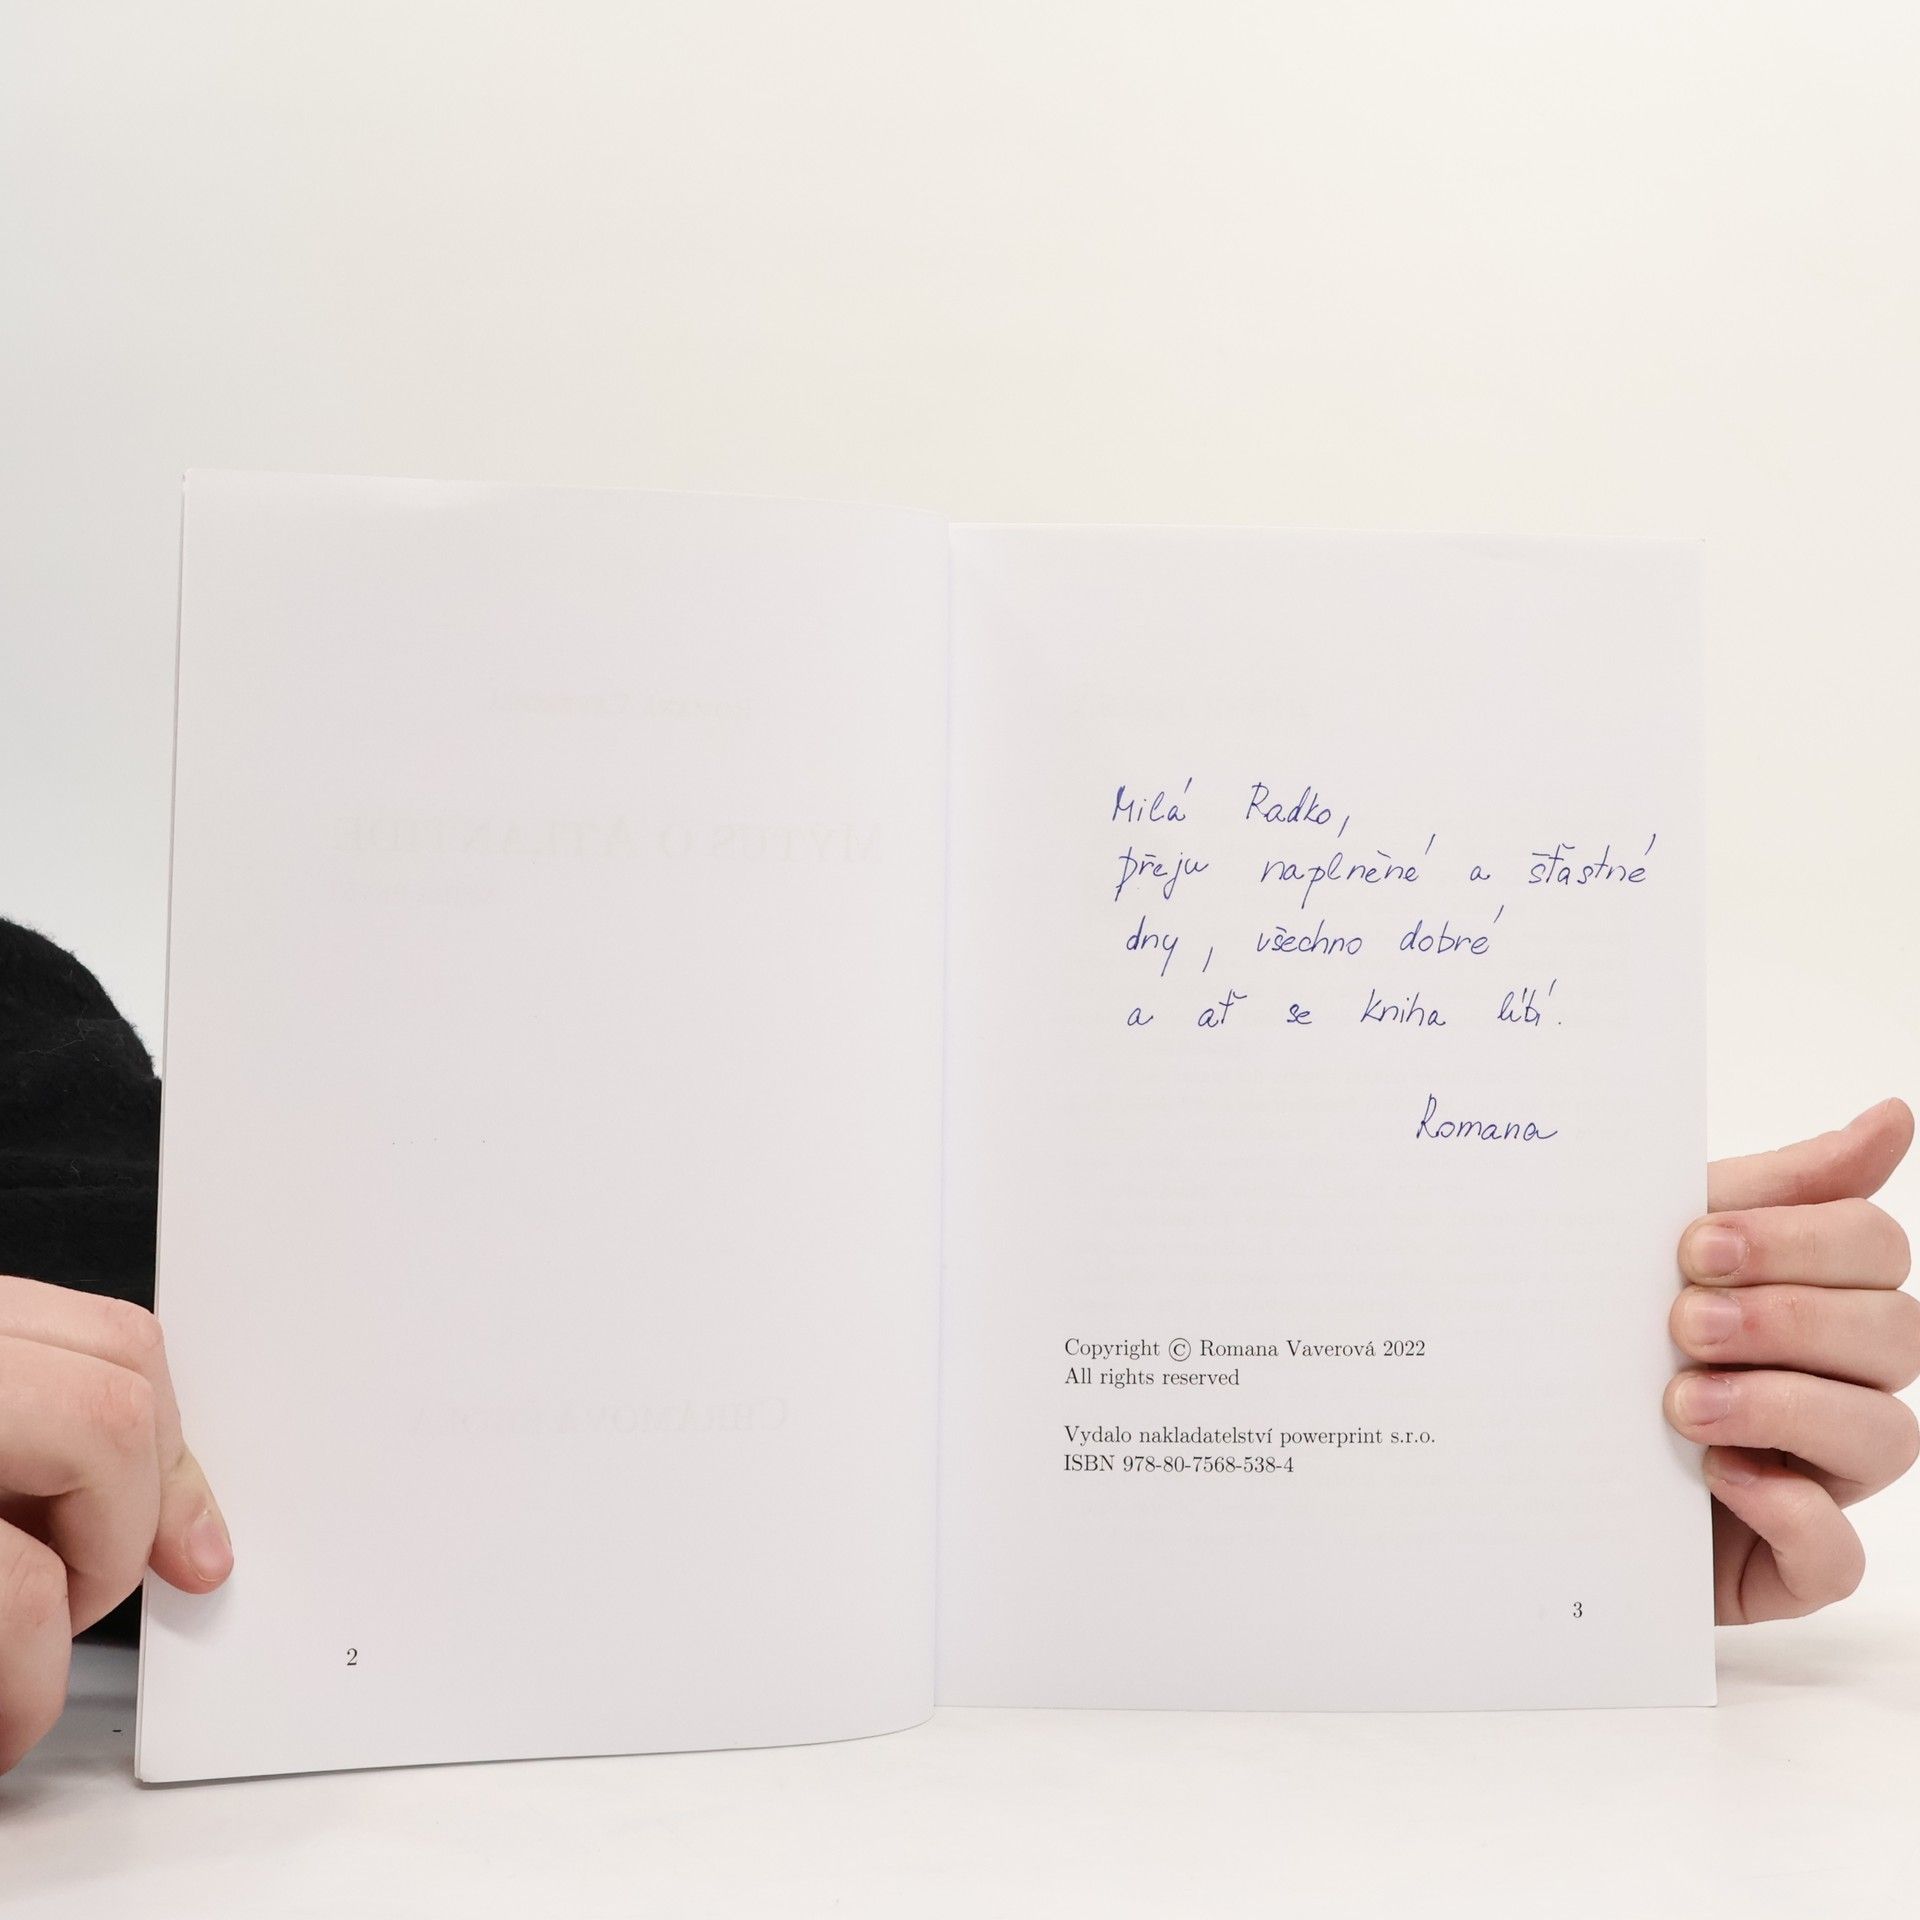 2
Milá Radko,
přeju naplněné a šťastné
dny, všechno dobré
a ať se kniha líbí.
Romana
Copyright © Romana Vaverová 2022
All rights reserved
Vydalo nakladatelství powerprint s.r.o.
ISBN 978-80-7568-538-4
3